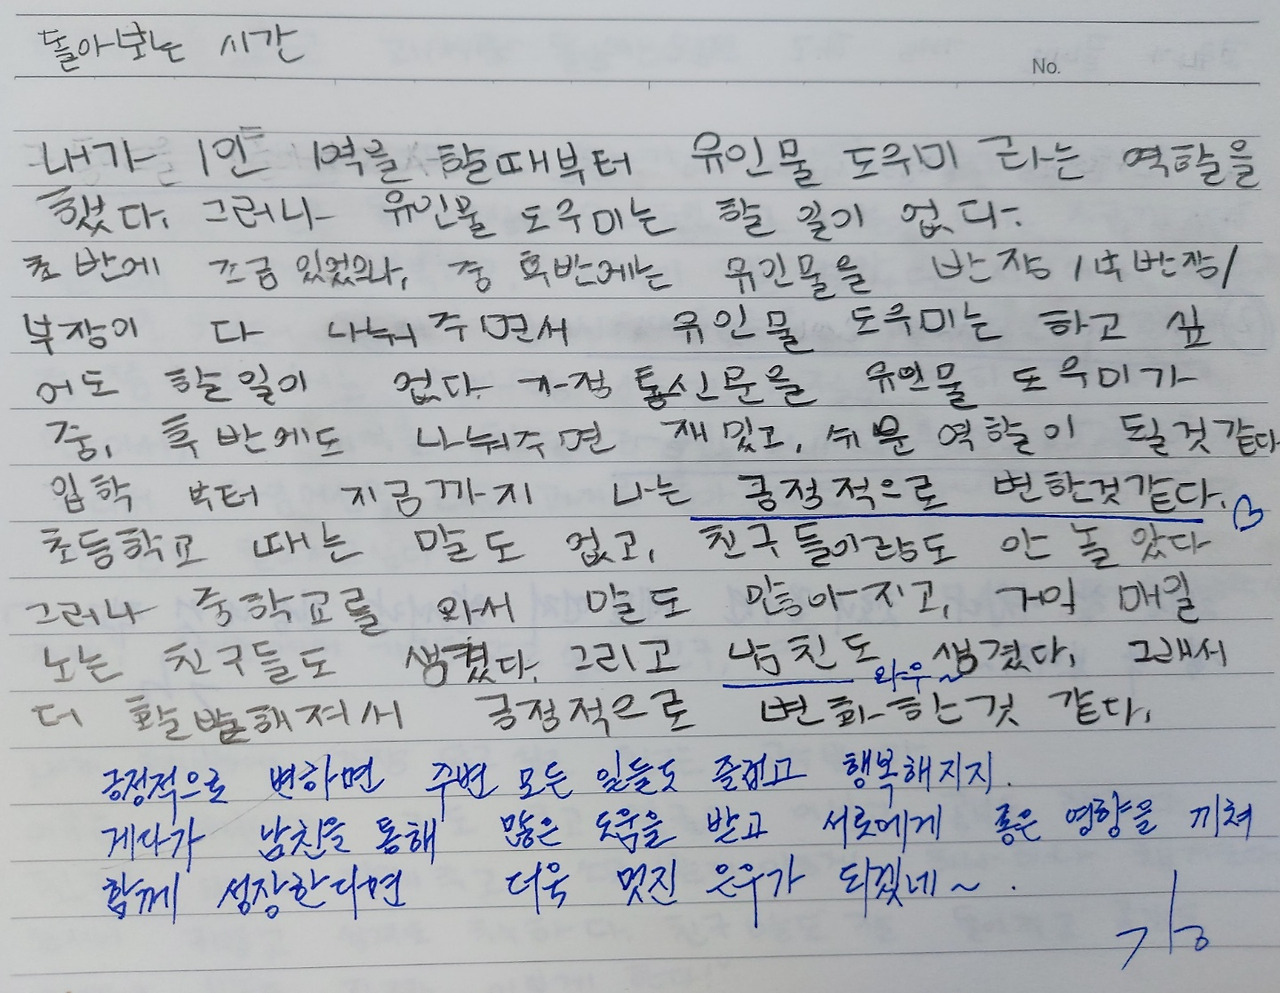 돌아보는 시간
No.
내가 1인 1역을 할때부터 유인물 도우미 라는 역할을
했다. 그러나 유인물 도우미는 할 일이 없다.
초반에 조금 있었으나, 중 후반에는 유인물을 반장/부반장/
부장이 다 나눠주면서 유인물 도우미는 하고 싶
어도 할일이 없다. 가정 통신문을 유인물 도우미가
중, 후반에도 나눠주면 재밌고, 쉬운 역할이 될것같다
입학 부터 지금까지 나는 긍정적으로 변한것같다.
초등학교 때는 말도 없고, 친구들이랑도 안 놀았다
그러나 중학교를 와서 말도 많아지고, 거의 매일
노는 친구들도 생겼다. 그리고 남친도 생겼다. 그래서
와우~
더 활발해져서 긍정적으로 변화한것 같다.
긍정적으로 변하면 주변 모든 일들도 즐겁고 행복해지지.
게다가 남친을 통해 많은 도움을 받고 서로에게 좋은 영향을 끼쳐
함께 성장한다면 더욱 멋진 은우가 되겠네~.